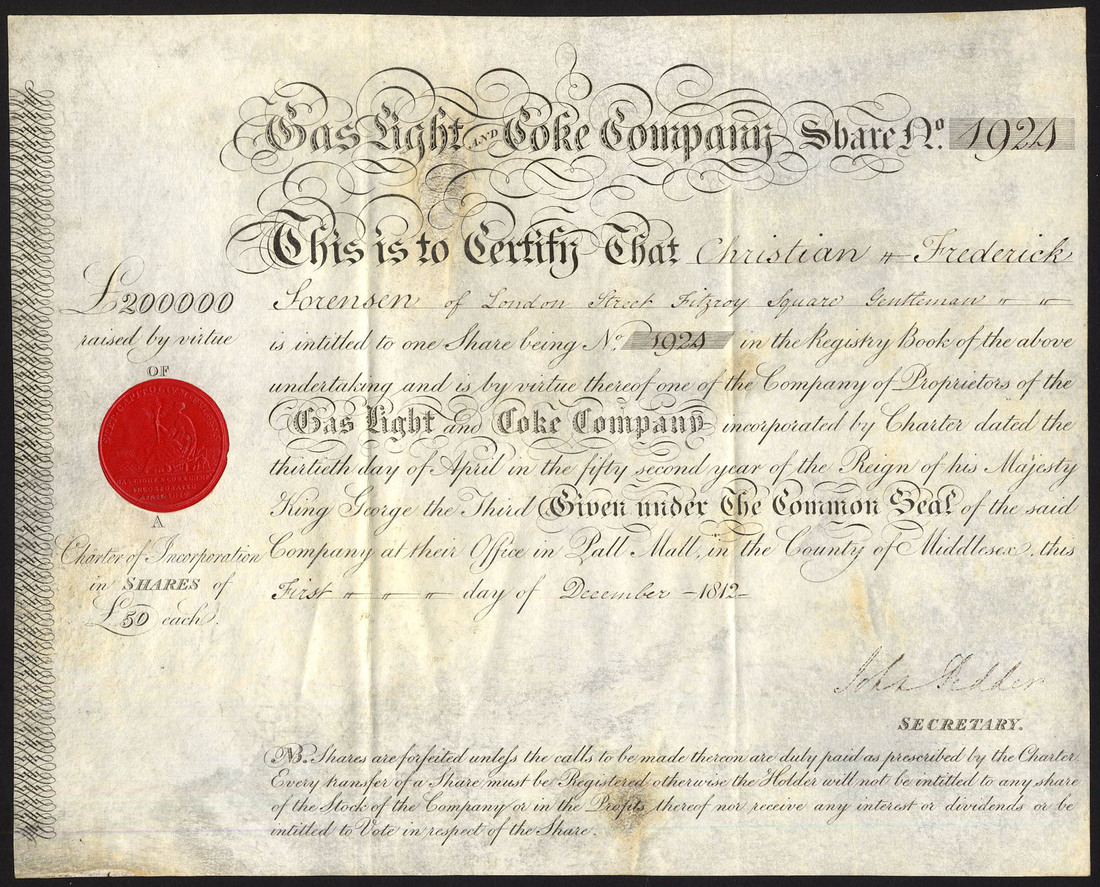 Gas Light AND Coke Company Share No. 1924
This is to Certify That Christian Frederick
Sorensen of London Street Fitzroy Square Gentleman
is intitled to one Share being No. 1924 in the Registry Book of the above
undertaking and is by virtue thereof one of the Company of Proprietors of the
Gas Light and Coke Company incorporated by Charter dated the
thirtieth day of April in the fifty second year of the Reign of his Majesty
King George the Third Given under The Common Seal of the said
Company at their Office in Pall Mall, in the County of Middlesex, this
First day of December -1812-
£200000
raised by virtue
OF
A
Charter of Incorporation
in SHARES of
£50 each.
John
SECRETARY.
NB. Shares are forfeited unless the calls to be made thereon are duly paid as prescribed by the Charter.
Every transfer of a Share must be Registered otherwise the Holder will not be intitled to any share
of the Stock of the Company or in the Profits thereof nor receive any interest or dividends or be
intitled to Vote in respect of the Share.